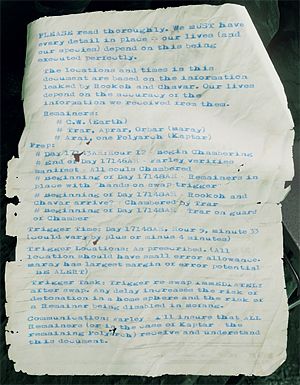 PLEASE read thoroughly. We MUST have
every detail in place - our lives (and
our species) depend on this being
executed perfectly.
The locations and times in this
document are based on the information
leaked by Rookoh and Chavar. Our lives
depend on the accuracy of the
information we received from them.
Remainers:
# C.W. (Earth)
# Trar, Aprar, Orbar (Maray)
# Arai, one Polyarch (Kaptar)
Prep:
# Day 17145AR: Hour 17 Begin Chambering
# End of Day 17146AR - Farley verifies
manifest - All souls Chambered
# Beginning of Day 17148AR - Remainers in
place with 'hands on swap trigger'
# Beginning of Day 17148AR - Rookoh and
Chavar arrive? Chambered by Trar
# Beginning of Day 17148AR - Trar on guard
of Chamber
Trigger Time: Day 17148AR, Hour 9, minute 33
(could vary by plus or minus 4 minutes)
Trigger Locations: As prescribed. (All
location should have small error allowance.
Maray has largest margin of error potential
BE ALERT)
Trigger Task: Trigger re swap IMMEDIATELY
after swap. Any delay increases the risk of
detonation in a home sphere and the risk of
a Remainer being disabled in
Communication: Farley insure that ALL
Remainers (or in the case of Kaptar - the
remaining Polyarch) receive and understand
this document.